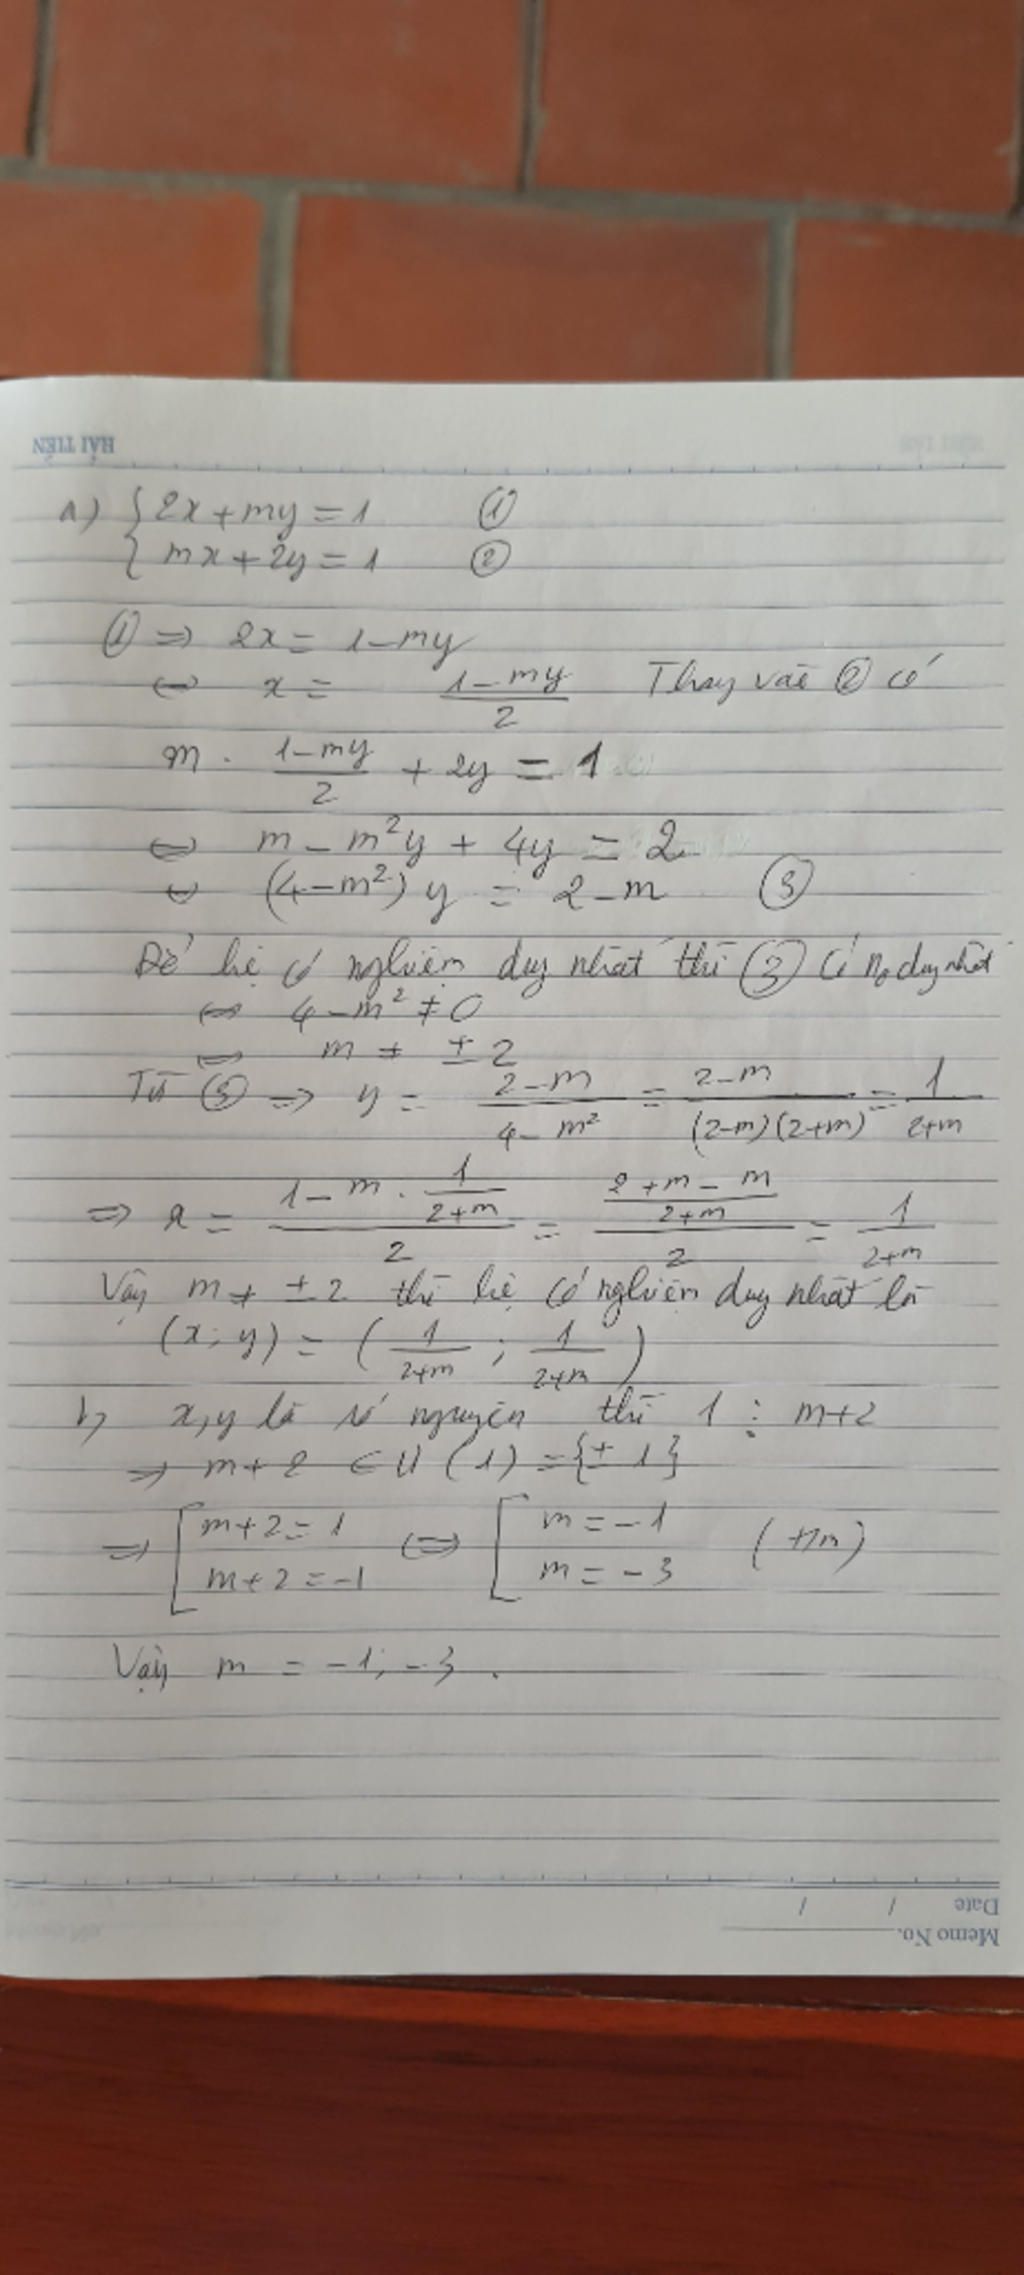 HẢI TIẾN
a) { 2x + my = 1 ①
{ mx + 2y = 1 ②
① => 2x = 1 - my
<=> x = (1 - my)/2 Thay vào ② có
m . (1 - my)/2 + 2y = 1
<=> m - m²y + 4y = 2
<=> (4 - m²) y = 2 - m ③
Để hệ có nghiệm duy nhất thì ③ có n₀ duy nhất
<=> 4 - m² ≠ 0
<=> m ≠ ± 2
Từ ③ => y = (2 - m)/(4 - m²) = (2 - m)/((2-m)(2+m)) = 1/(2+m)
=> x = (1 - m . 1/(2+m))/2 = ((2 + m - m)/(2+m))/2 = 1/(2+m)
Vậy m ≠ ± 2 thì hệ có nghiệm duy nhất là
(x; y) = ( 1/(2+m) ; 1/(2+m) )
b, x, y là số nguyên thì 1 ⋮ m+2
=> m + 2 ∈ Ư (1) = {± 1}
=> [ m+2 = 1 <=> [ m = -1 (t/m)
[ m+2 = -1 [ m = -3
Vậy m = -1; -3 .
Date / /
Memo No.